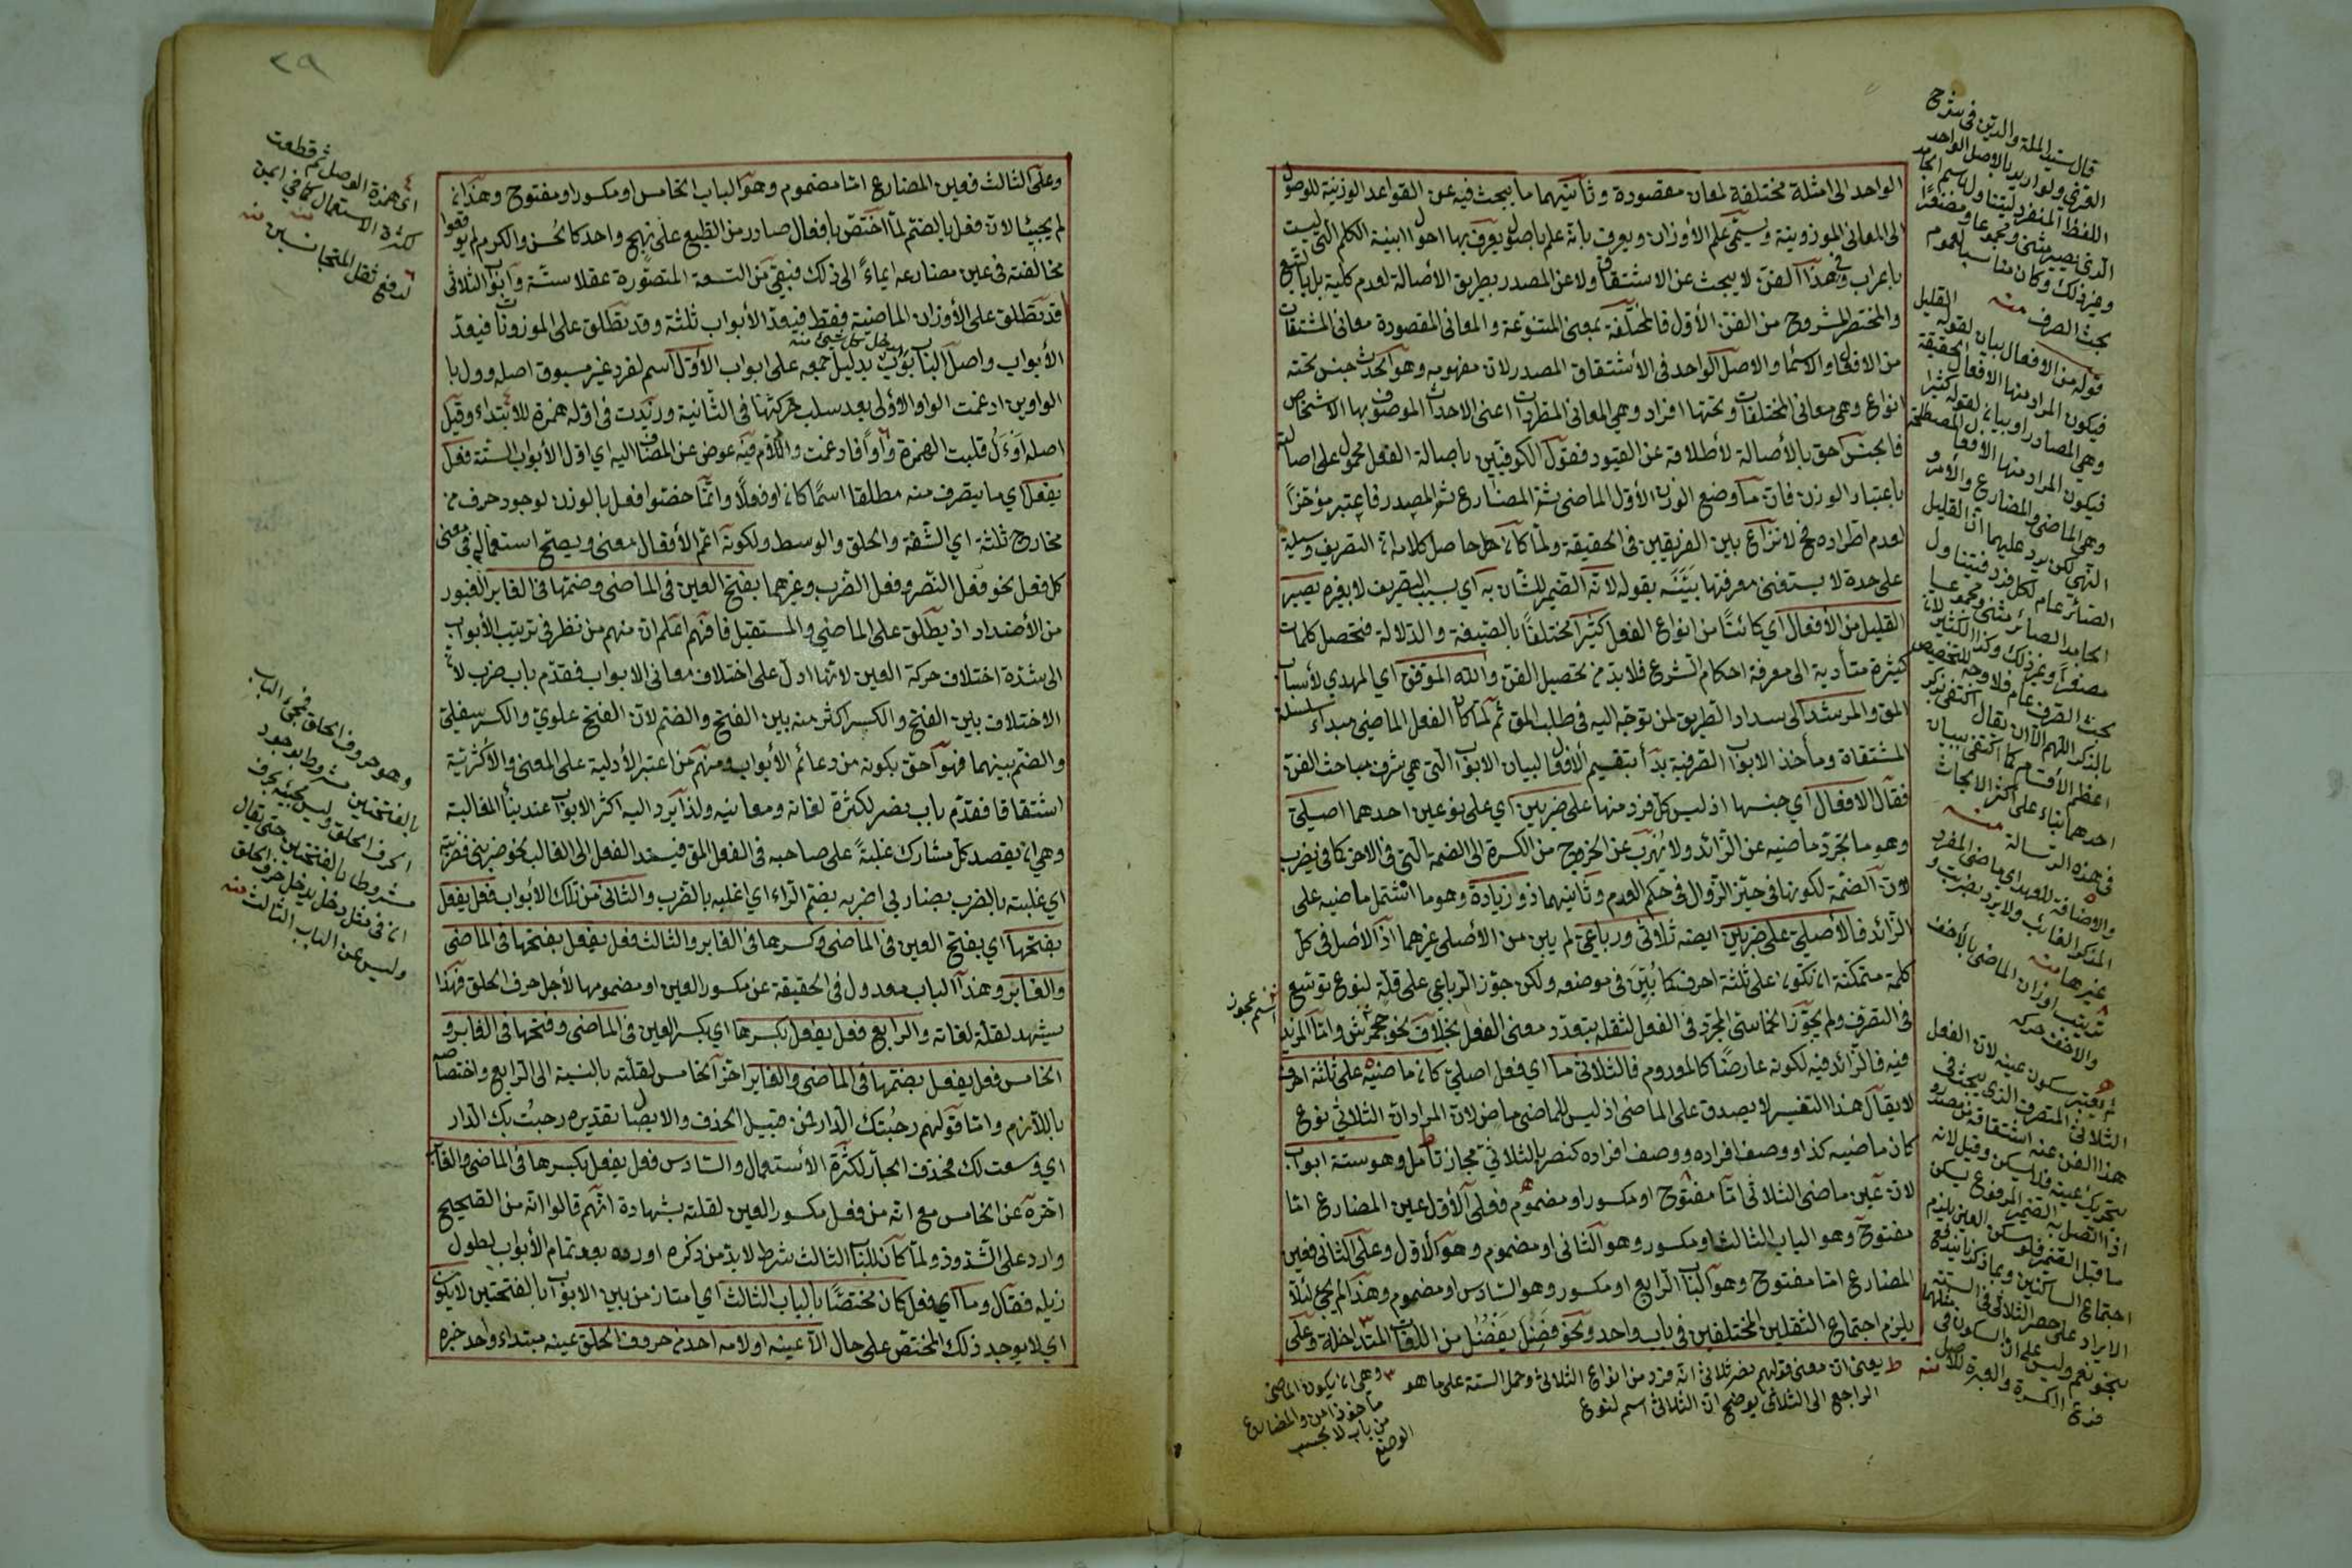 الواحد الى امثلة مختلفة لمعان مقصودة وثانيهما ما يبحث فيه عن القواعد الوزنية للوصول
الى المعانى الموزونية ويسمى علم الأوزان ويعرف بانه علم باصول يعرف بها احوال ابنية الكلم التى ليست
باعراب وفى هذا الفن لا يبحث عن الاشتقاق ولا عن المصدر بطريق الاصالة لعدم كلية بل بالتبع
والمختصر المشروح من الفن الأول فالمختلفة بمعنى المتنوعة والمعانى المقصودة معانى المشتقات
من الافعال والاسماء والاصل الواحد فى الأشتقاق المصدر لان مفهومه وهو الحدث جنس تحته
انواع وهى معانى المختلفات وتحتها افراد وهى المعانى المطردات اعنى الاحداث الموصوف بها الاشخاص
فالجنس احق بالأصالة لأطلاقه عن القيود فقول الكوفيين باصالة الفعل محمول على اصالته
باعتبار الوزن فان ما وضع الوزن الأول الماضى ثم المضارع ثم المصدر فاعتبر مؤخراً
لعدم اطراده فح لا نزاع بين الفريقين فى الحقيقة ولما كان حاصل كلامه ان التصريف وسيلة
على حدة لا يستغنى معرفتها بينه بقوله لانه الضمير للشان به اي بسبب التصريف لا بغيره يصير
القليل من الأفعال اي كائنًا من انواع الفعل كثيرًا مختلفًا بالصيغة والدلالة فتحصل كلمات
كثيرة متأدية الى معرفة احكام الشرع فلا بد من تحصيل الفن والله الموفق اي المهدي لأسباب
الحق والمرشد الى سداد الطريق لمن توجه اليه فى طلب الحق ثم لما كان الفعل الماضى مبداء لسلسلة
المشتقاة ومأخذ الابواب الصرفية بدأ بتقسيم الأفعال لبيان الابواب التى هى شرف مباحث الفن
فقال الافعال اي جنسها اذ ليس كل فرد منها على ضربين اي على نوعين احدهما اصيلي
وهو ما تجرد ماضيه عن الزائد ولا يهرب عن الخروج من الكسرة الى الضمة التى فى الاخر كما فى يضرب
لان الضمة لكونها فى حيز الزوال فى حكم العدم وثانيهما ذو زيادة وهو ما اشتمل ماضيه على
الزائد فالأصلي على ضربين ايضه ثلاثى ورباعى لم يبن من الأصلى غيرهما اذ الأصل فى كل
كلمة متمكنة ان تكون على ثلثة احرف كما بين فى موضعه ولكن جوز الرباعي على قلة لنوع توسع
فى التصرف ولم يجوز الخماسي المجرد فى الفعل لثقله بتعدد معنى الفعل بخلاف نحو جحمرش واما المزيد
فيه فالزائد فيه لكونه عارضًا كالمعدوم فالثلاثى ما اي فعل اصلي كان ماضيه على ثلثة احرف
لا يقال هذا التفسير لا يصدق على الماضى اذ ليس للماضى ماض لان المراد ان الثلاثي نوع
كان ماضيه كذا ووصف افراده ووصف افراده كنصر بالثلاثي مجاز تأمل وهو ستة ابواب
لان عين ماضى الثلاثى اما مفتوح او مكسور او مضموم فعلى الأول عين المضارع اما
مفتوح وهو الباب الثالث او مكسور وهو الثانى او مضموم وهو الأول وعلى الثانى فعين
المضارع اما مفتوح وهو الباب الرابع او مكسور وهو السادس او مضموم وهذا لم يجئ لئلا
يلزم اجتماع الثقلين المختلفين فى باب واحد ونحو فضل يفضل من اللغات المتداخلة وعلى
قال سيد الملة والدين فى شرح
العزى ولو اريد بالاصل الواحد
اللفظ المنفرد ليتناول اسم الجامد
الذى يصير مثنى ومجموعا ومصغرًا
وغير ذلك وكان مناسبا لعموم
بحث الصرف منه
قوله من الافعال بيان لقوله القليل
فيكون المراد منها الافعال الحقيقة
وهى المصادر او بيان لقوله كثيرا
فيكون المراد منها الافعال المصطلحة
وهى الماضى والمضارع والأمر و
النهى لكن يرد عليهما ان القليل
فى هذه الرسالة منه
والاضافة للعهد اي ماضى المفرد
المذكر الغائب ولا يرد بضربت و
غيرها منه
اسم عجوز
ط يعنى ان معنى قولهم نصر ثلاثى انه فرد من انواع الثلاثى وحمل الستة على ما هو
الراجع الى الثلاثى يوضح ان الثلاثى اسم لنوع
٣ وهى ان يكون الماضى
مأخوذا من والمضارع
من باب لا بحسب
الوضع
٢٩
وعلى الثالث فعين المضارع اما مضموم وهو الباب الخامس او مكسور او مفتوح وهذان
لم يجيئا لان فعل بالضم لما اختص بافعال صادر من الطبع على نهج واحد كالحسن والكرم لم يوقعوا
مخالفته فى عين مضارعه ايماءً الى ذلك فبقي من التسعة المتصورة عقلا ستة وابواب الثلاثى
قد تطلق على الأوزان الماضية فقط فيعد الأبواب ثلثة وقد تطلق على الموزونات فيعد
الأبواب واصل الباب بوب بدليل جمعه على ابواب الأول اسم لفرد غير مسبوق اصله وول با
الواوين ادغمت الواو الأولى بعد سلب حركتها فى الثانية وزيدت فى اوله همزة للابتداء وقيل
اصله اوءل قلبت الهمزة واوًا فادغمت واللام فيه عوض عن المضاف اليه اي اول الأبواب الستة فعل
يفعل اي ما يتصرف منه مطلقا اسمًا كان او فعلًا وانما خصوا فعل بالوزن لوجود حرف من
مخارج ثلثة اي الشفة والحلق والوسط ولكونه اعم الأفعال معنى ويصح استعماله فى معنى
كل فعل نحو فعل النصر وفعل الضرب وغيرهما بفتح العين فى الماضى وضمها فى الغابر الغبور
من الأضداد اذ يطلق على الماضي والمستقبل فافهم اعلم ان منهم من نظر فى ترتيب الأبواب
الى شدة اختلاف حركة العين لانها ادل على اختلاف معانى الابواب فقدم باب ضرب لان
الاختلاف بين الفتح والكسر اكثر منه بين الفتح والضم لان الفتح علوي والكسر سفلي
والضم بينهما فهو احق بكونه من دعائم الأبواب ومنهم من اعتبر الأدلية على المعنى والأكثرية
اشتقاقا فقدم باب نصر لكثرة لغاته ومعانيه ولذا يرد اليه اكثر الابواب عند بناء المغالبة
وهى ان يقصد كل مشارك غلبةً على صاحبه فى الفعل المق فيسند الفعل الى الغالب نحو ضربنى فضربته
اي غلبته بالضرب يضاربى اضربه بضم الراء اي اغلبه بالضرب والثانى من تلك الأبواب فعل يفعل
بفتحها اي بفتح العين فى الماضى وكسرها فى الغابر والثالث فعل يفعل بفتحها فى الماضى
والغابر وهذا الباب معدول فى الحقيقة عن مكسور العين او مضمومها لأجل حرف الحلق فهذا
يشهد لقلة لغاته والرابع فعل يفعل بكسرها اي بكسر العين فى الماضى وفتحها فى الغابر و
الخامس فعل يفعل بضمها فى الماضى والغابر اخر الخامس لقلته بالنسبة الى الرابع واختصاصه
باللازم واما قولهم رحبتك الدار فمن قبيل الحذف والايصال تقديره رحبت بك الدار
اي وسعت لك فحذف الجار لكثرة الأستعمال والسادس فعل يفعل بكسرها فى الماضى والغابر
اخره عن الخامس مع انه من فعل مكسور العين لقلته بشهادة انهم قالوا انه من الصحيح
وارد على الشذوذ ولما كان للباب الثالث شرط لا بد من ذكره اورده بعد تمام الأبواب لطول
ذيله فقال وما اي فعل كان مختصًا بالباب الثالث اي امتاز من بين الابواب بالفتحتين لا يكون
اي لا يوجد ذلك المختص على حال الا عينه او لامه احد من حروف الحلق عينه مبتداء واحد خبره
٤
اى همزة الوصل ثم قطعت
لكثرة الاستعمال كما فى ايمن
منه
٦ لدفع ثقل المتجانسين منه
وهو حروف الحلق فمجئ الباب
بالفتحتين مشروط بوجود
الحرف الحلق وليس مجيئه بحرف
مشروطا بالفتحتين حتى يقال
ان فى مثل دخل يدخل حرف الحلق
وليس عن الباب الثالث منه